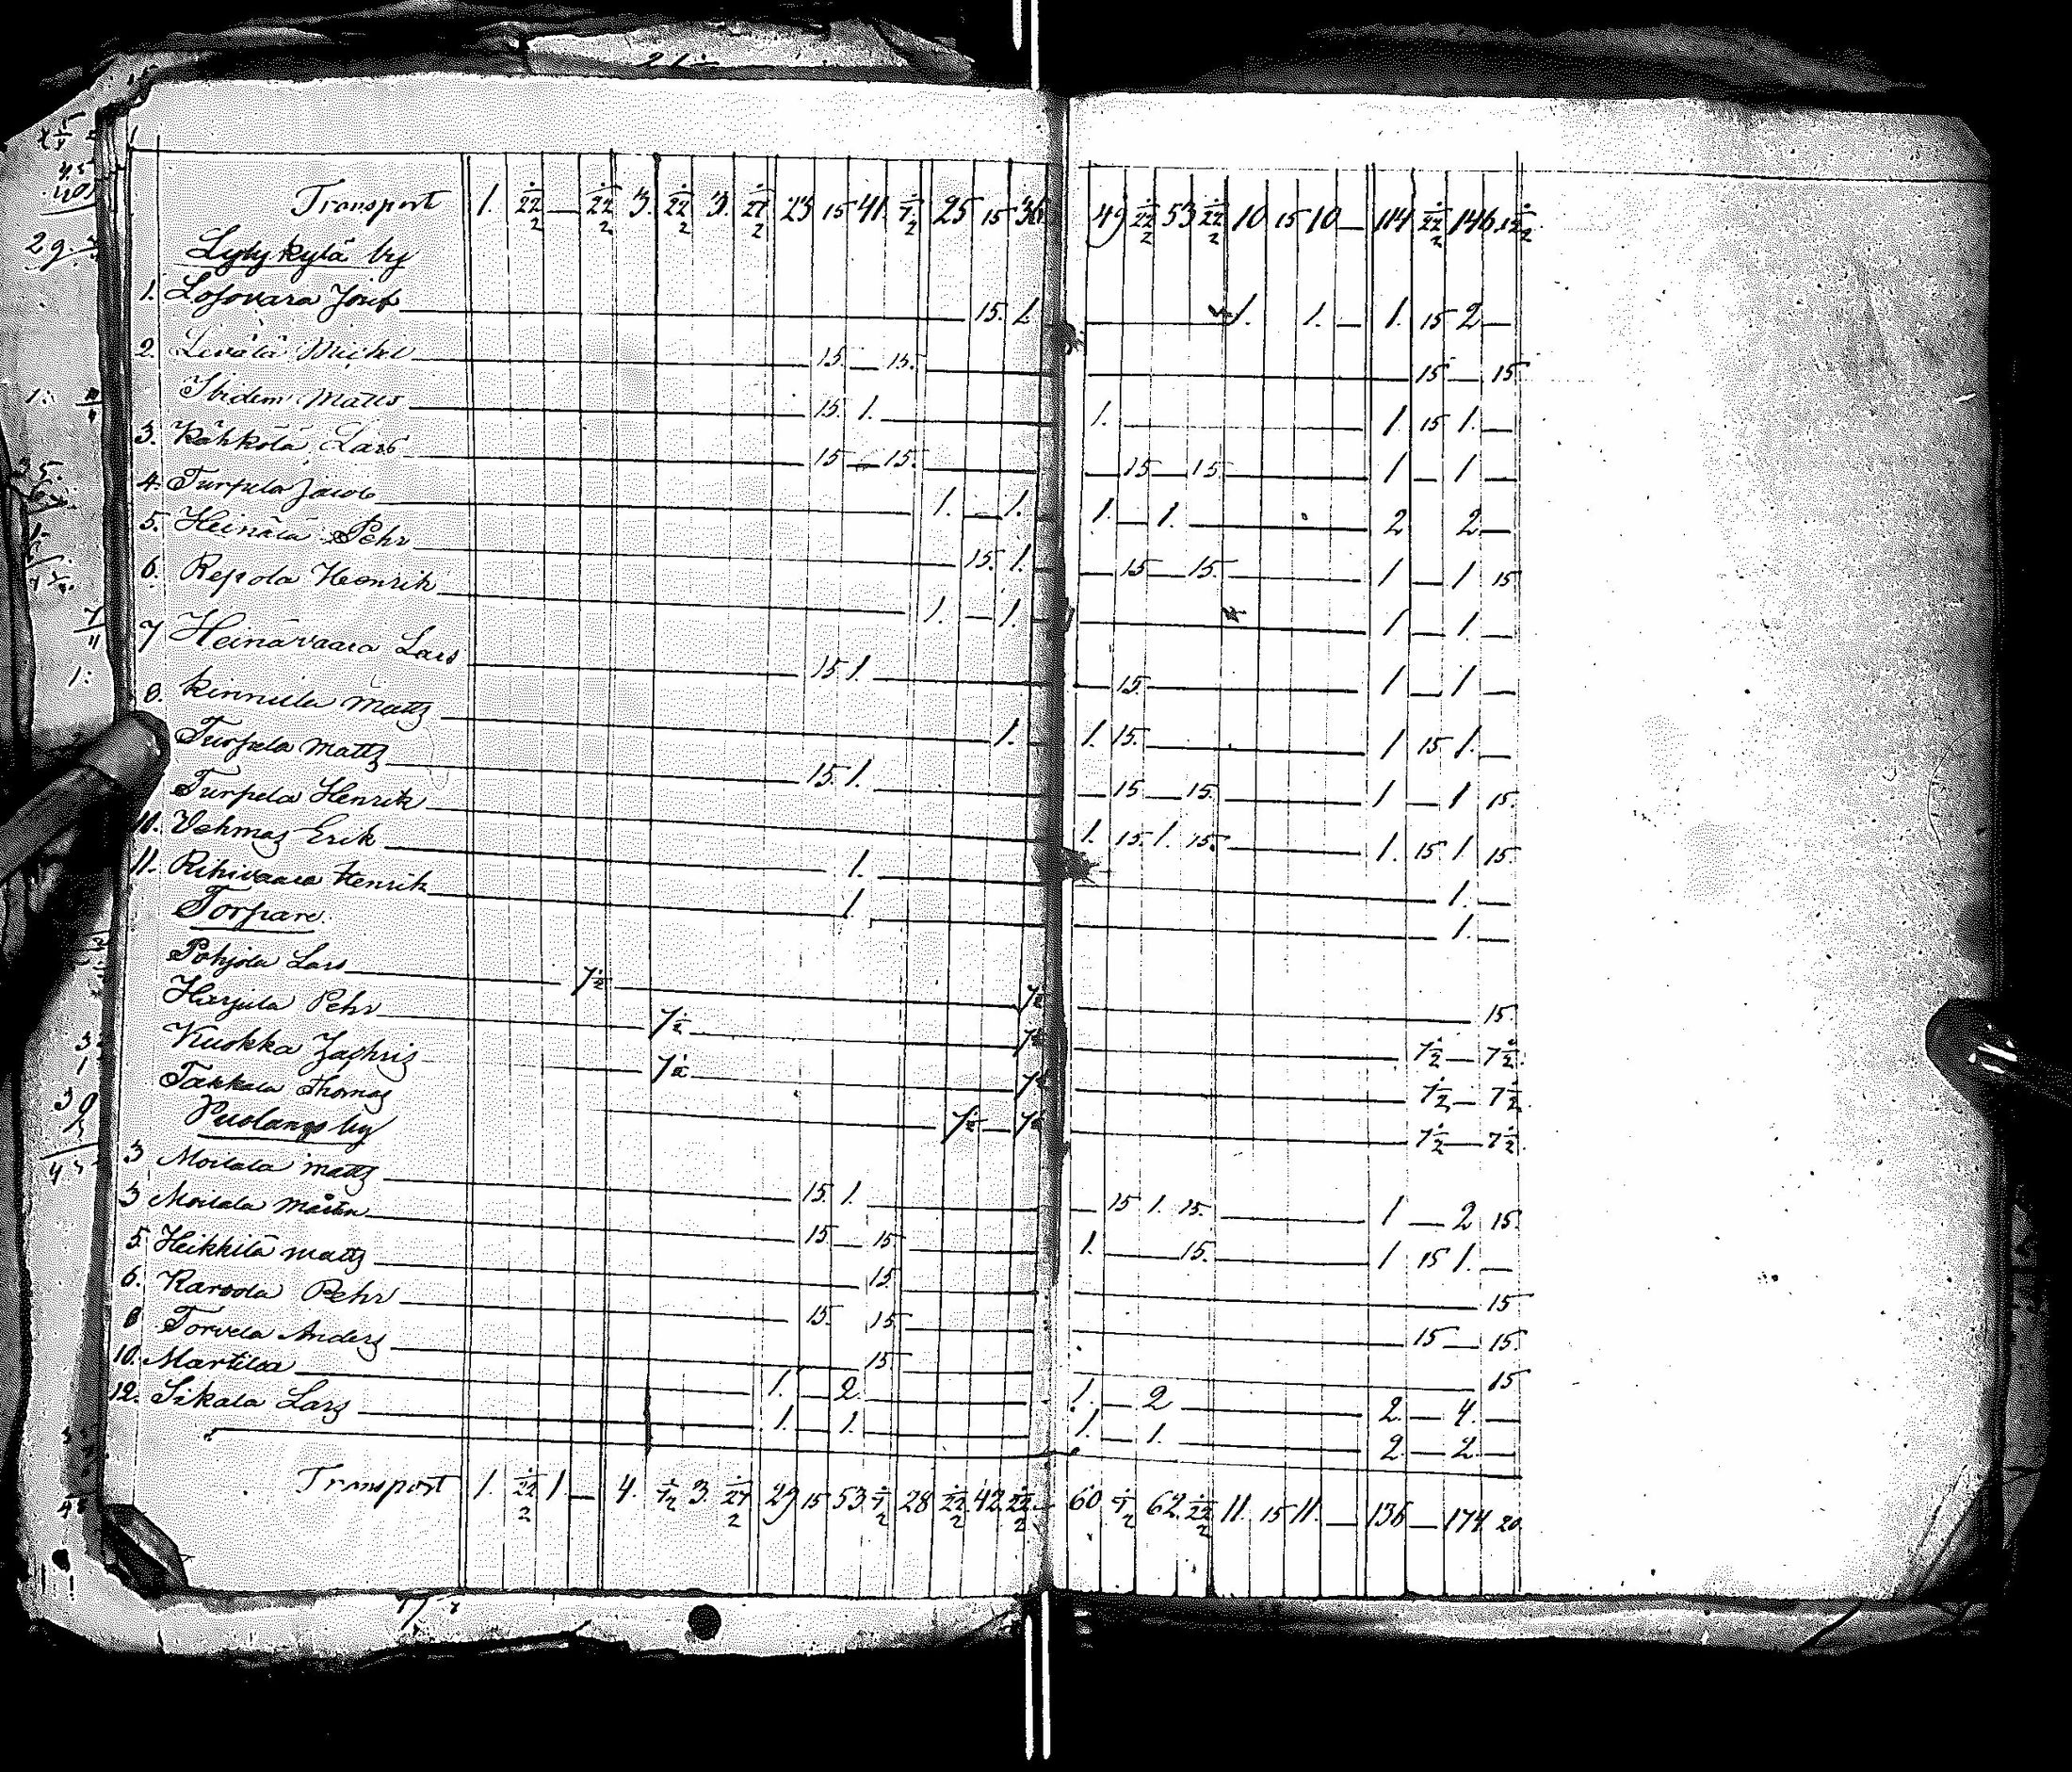 Transport 1. 22½ — 22½ 3. 22½ 3. 27½ 23 15 41. 7½ 25 15 36 49 22½ 53 22½ 10 15 10 — 114 22½ 146
Lytykylä by
1. Losovara Josef 15. 1. 1. 1. — 1. 15 2 —
2. Leväla Michel 15 — 15. 15 — 15
Ibidem Matts 15. 1. 1. 1 15 1. —
3. Kähkölä Lars 15 — 15. 15 — 15 1 — 1 —
4. Turpela Jacob 1. — 1. 1. — 1. 2 2 —
5. Heinälä Pehr 15. 1. 15 — 15. 1 — 1 15
6. Repola Henrik 1. — 1. 1 — 1. —
7 Heinävaara Lars 15 1. 15. 1 — 1 —
8. Kinnula Matts 1. 1. 15. 1 15 1. —
Turpela Matts 15. 1. 15 — 15. 1 — 1 15.
Turpela Henrik 1. 15. 1. 15. 1. 15 1. 15.
10. Vehmas Erik 1. 1. —
11. Rihivaara Henrik 1. 1. —
Torpare.
Pohjola Lars 7½ 7½ 15.
Harjula Pehr 7½ 7½ 7½ — 7½
Kuokka Zachris 7½ 7½ 7½ — 7½
Takkala Thomas 7½ — 7½ 7½ — 7½
Puolango by
3 Moilala Matts 15. 1. 15 1. 15. 1 — 2 15.
3 Moilala Mårten 15 — 15 1. 15. 1 15 1. —
5. Heikkilä Matts 15. 15
6. Karvola Pehr 15. 15. 15 — 15.
8 Torvela Anders 15 15
10. Martila 1. — 2. 1. — 2 2 — 4. —
12. Sikala Lars 1. — 1. 1. — 1. 2 — 2 —
Transport 1. 22½ 1. — 4. 7½ 3. 27½ 29 15 53. 7½ 28 22½ 42 22½ 60. 7½ 62. 22½ 11. 15 11. — 136 — 174 20